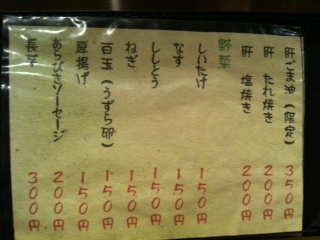 肝ごま油(限定) 350円
肝 たれ焼き 200円
肝 塩焼き 200円
野菜
しいたけ 150円
なす 150円
ししとう 150円
ねぎ 150円
百玉(うずら卵) 150円
厚揚げ 150円
あらびきソーセージ 200円
長芋 300円